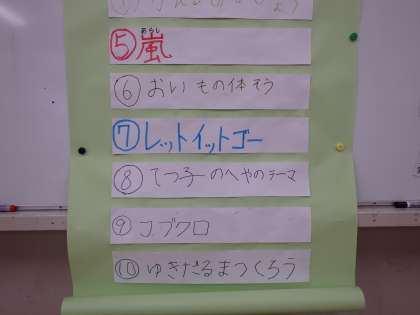 ⑤嵐
あらし
⑥おいもの体そう
⑦レットイットゴー
⑧てつ子のへやのテーマ
⑨コブクロ
⑩ゆきだるまつくろう